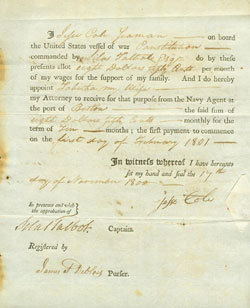 I Jesse Cole Seaman on board
the United States vessel of war Constitution
commanded by Silas Talbot Esqr. do by these
presents allot eight Dollars fifty Cents per month
of my wages for the support of my family. And I do hereby
appoint Tabitha my Wife
my Attorney to receive for that purpose from the Navy Agent at
the port of Boston the said sum of
eight Dollars fifty Cents monthly for the
term of Ten months; the first payment to commence
on the first day of February 1801
In witness whereof I have hereunto
set my hand and seal the 17th
day of November 1800
Jesse Cole
In presence and with
the approbation of
Silas Talbot Captain.
Registered by
James Purser.